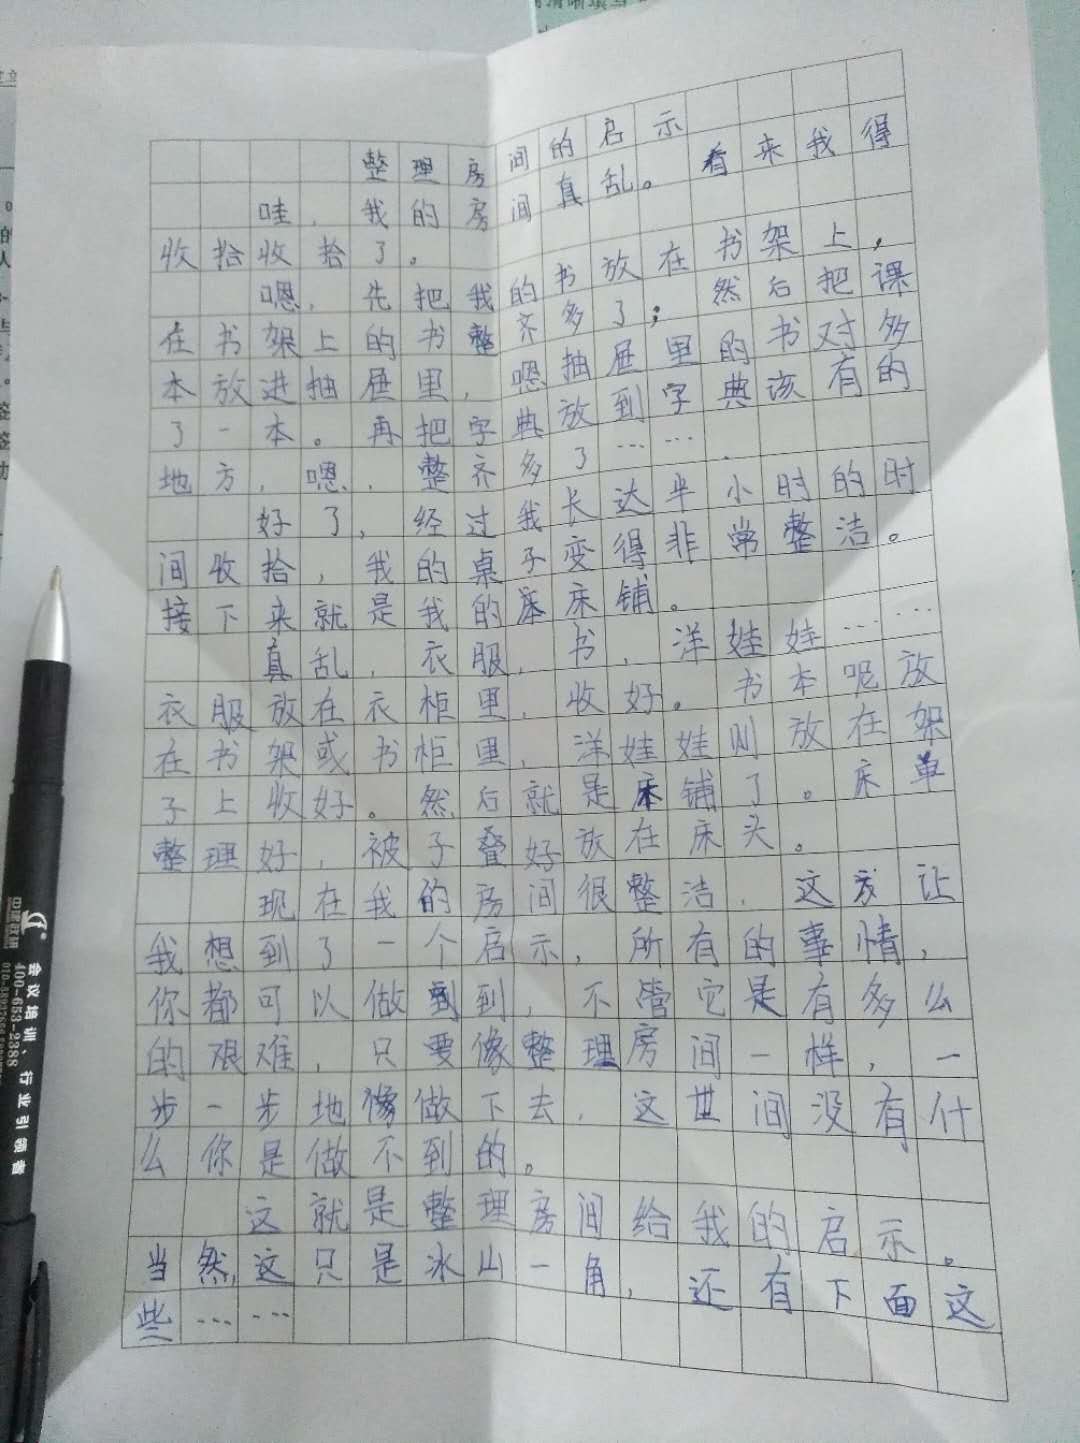 整理房间的启示
哇，我的房间真乱。看来我得
收拾收拾了。
嗯，先把我的书放在书架上，
在书架上的书整齐多了；然后把课
本放进抽屉里，嗯抽屉里的书对多
了一本。再把字典放到字典该有的
地方，嗯，整齐多了……
好了，经过我长达半小时的时
间收拾，我的桌子变得非常整洁。
接下来就是我的床铺。
真乱，衣服，书，洋娃娃……
衣服放在衣柜里，收好。书本呢放
在书架或书柜里，洋娃娃则放在架
子上收好。然后就是床铺了。床单
整理好，被子叠好放在床头。
现在我的房间很整洁，这让
我想到了一个启示，所有的事情，
你都可以做到到，不管它是有多么
的艰难，只要像整理房间一样，一
步一步地像做下去，这世间没有什
么你是做不到的。
这就是整理房间给我的启示。
当然，这只是冰山一角，还有下面这
些……
会议培训、行业引领者
400-653-2388